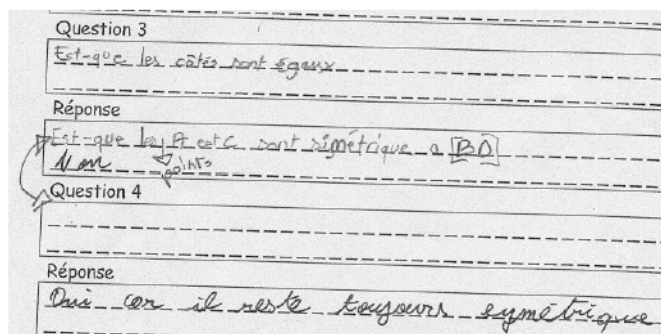 Question 3
Est-que les côtés sont égaux
Réponse
Est-que les A et C sont simétrique a [BD]
Non points
Question 4
Réponse
Oui car il reste toujours symétrique